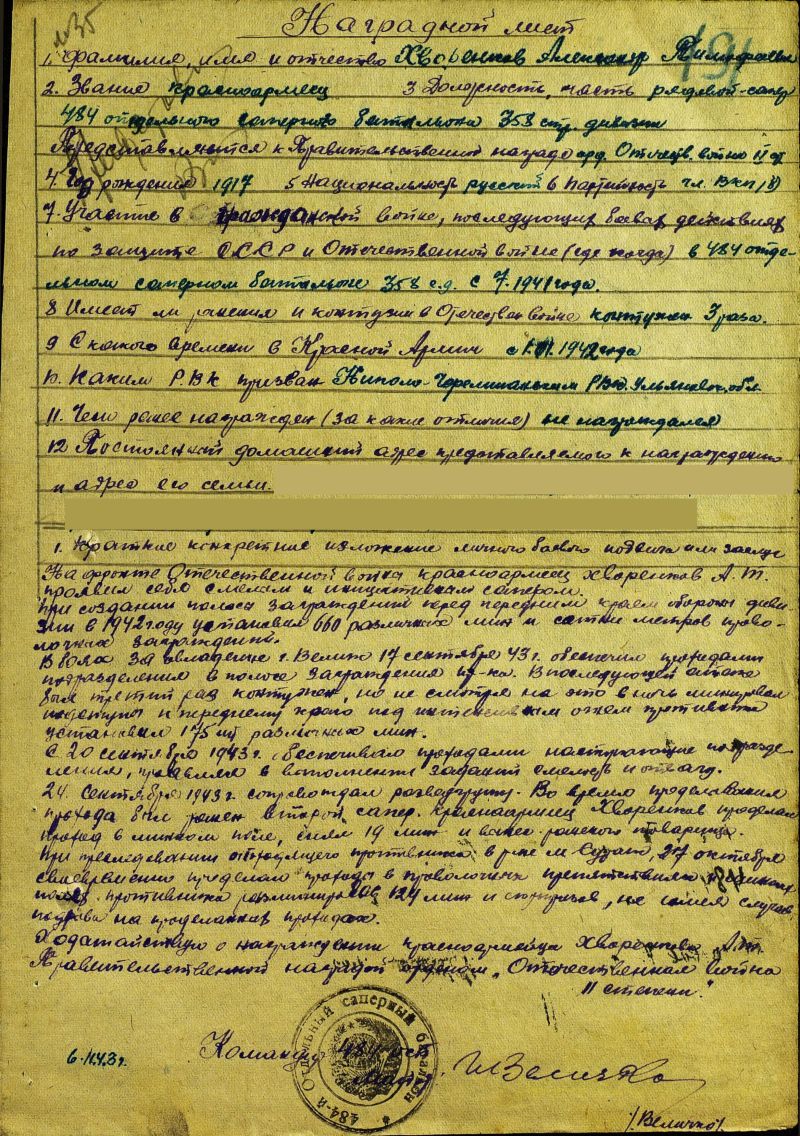 Наградной лист
1. Фамилия, имя и отчество Хворенков Александр
2. Звание красноармеец 3 Должность, часть рядовой-сапер
484 отдельного саперного батальона 358 стр. дивизии
Представляется к Правительственной награде орд. Отечеств. войны II ст
4. Год рождения 1917 5 Национальность русский 6 Партийность чл. ВКП(б)
7. Участие в гражданской войне, последующих боевых действиях
по защите СССР и Отечественной войне (где когда) в 484 отде-
льном саперном батальоне 358 с.д. с 1941 года.
8 Имеет ли ранения и контузии в Отечествен войне контужен 3 раза.
9 С какого времени в Красной Армии с 1942 года
10. Каким РВК призван РВК, Ульяновск. обл.
11. Чем ранее награжден (за какие отличия) не награждался
12 Постоянный домашний адрес представляемого к награждению
и адрес его семьи.
1. Краткие конкретные изложение личного боевого подвига или заслуг
На фронте Отечественной войны красноармеец Хворенков А. Т.
проявил себя смелым и инициативным сапером.
При создании полосы заграждений перед передним краем обороны диви-
зии в 1942 году установил 660 различных мин и сотни метров прово-
лочных заграждений.
В боях за овладение г. Велиж 17 сентября 43 г. обеспечил проходами
подразделения в полосе заграждения пр-ка. В последующей атаке
был третий раз контужен, но не смотря на это в ночь минировал
подступы к переднему краю под интенсивным огнем противника
установил 175 шт различных мин.
С 20 сентября 1943 г. обеспечивал проходами наступающие подразде-
ления, проявляя в выполнении заданий смелость и отвагу.
24. Сентября 1943 г. сопровождал разведгруппу. Во время проделывания
прохода был ранен второй сапер. Красноармеец Хворенков проделал
проход в минном поле, снял 19 мин и вынес раненого товарища.
При преследовании отходящего противника в р-не 27 октября
своевременно проделал проходы в проволочных препятствиях
противника разминировав 124 мин и не имея случаев
подрыва на проделанных проходах.
Ходатайствую о награждении красноармейца Хворенкова А. Т.
Правительственной наградой орденом "Отечественная война
II степени."
6.11.43 г.
Командир 484 осб
484-й Отдельный саперный батальон
/Величко/